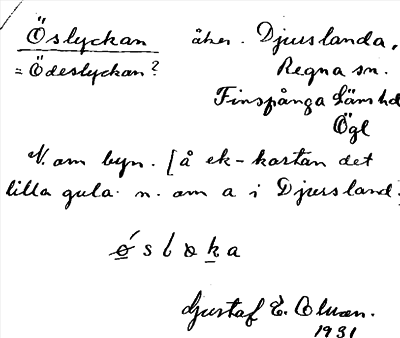 Öslyckan åker. Djurslanda,
= Ödeslyckan? Regna sn.
Finspånga läns hd
Ögl
N. om byn. [å ek-kartan det
lilla gula n. om a i Djursland.
ǿ s l o k a
Gustaf E.
1931